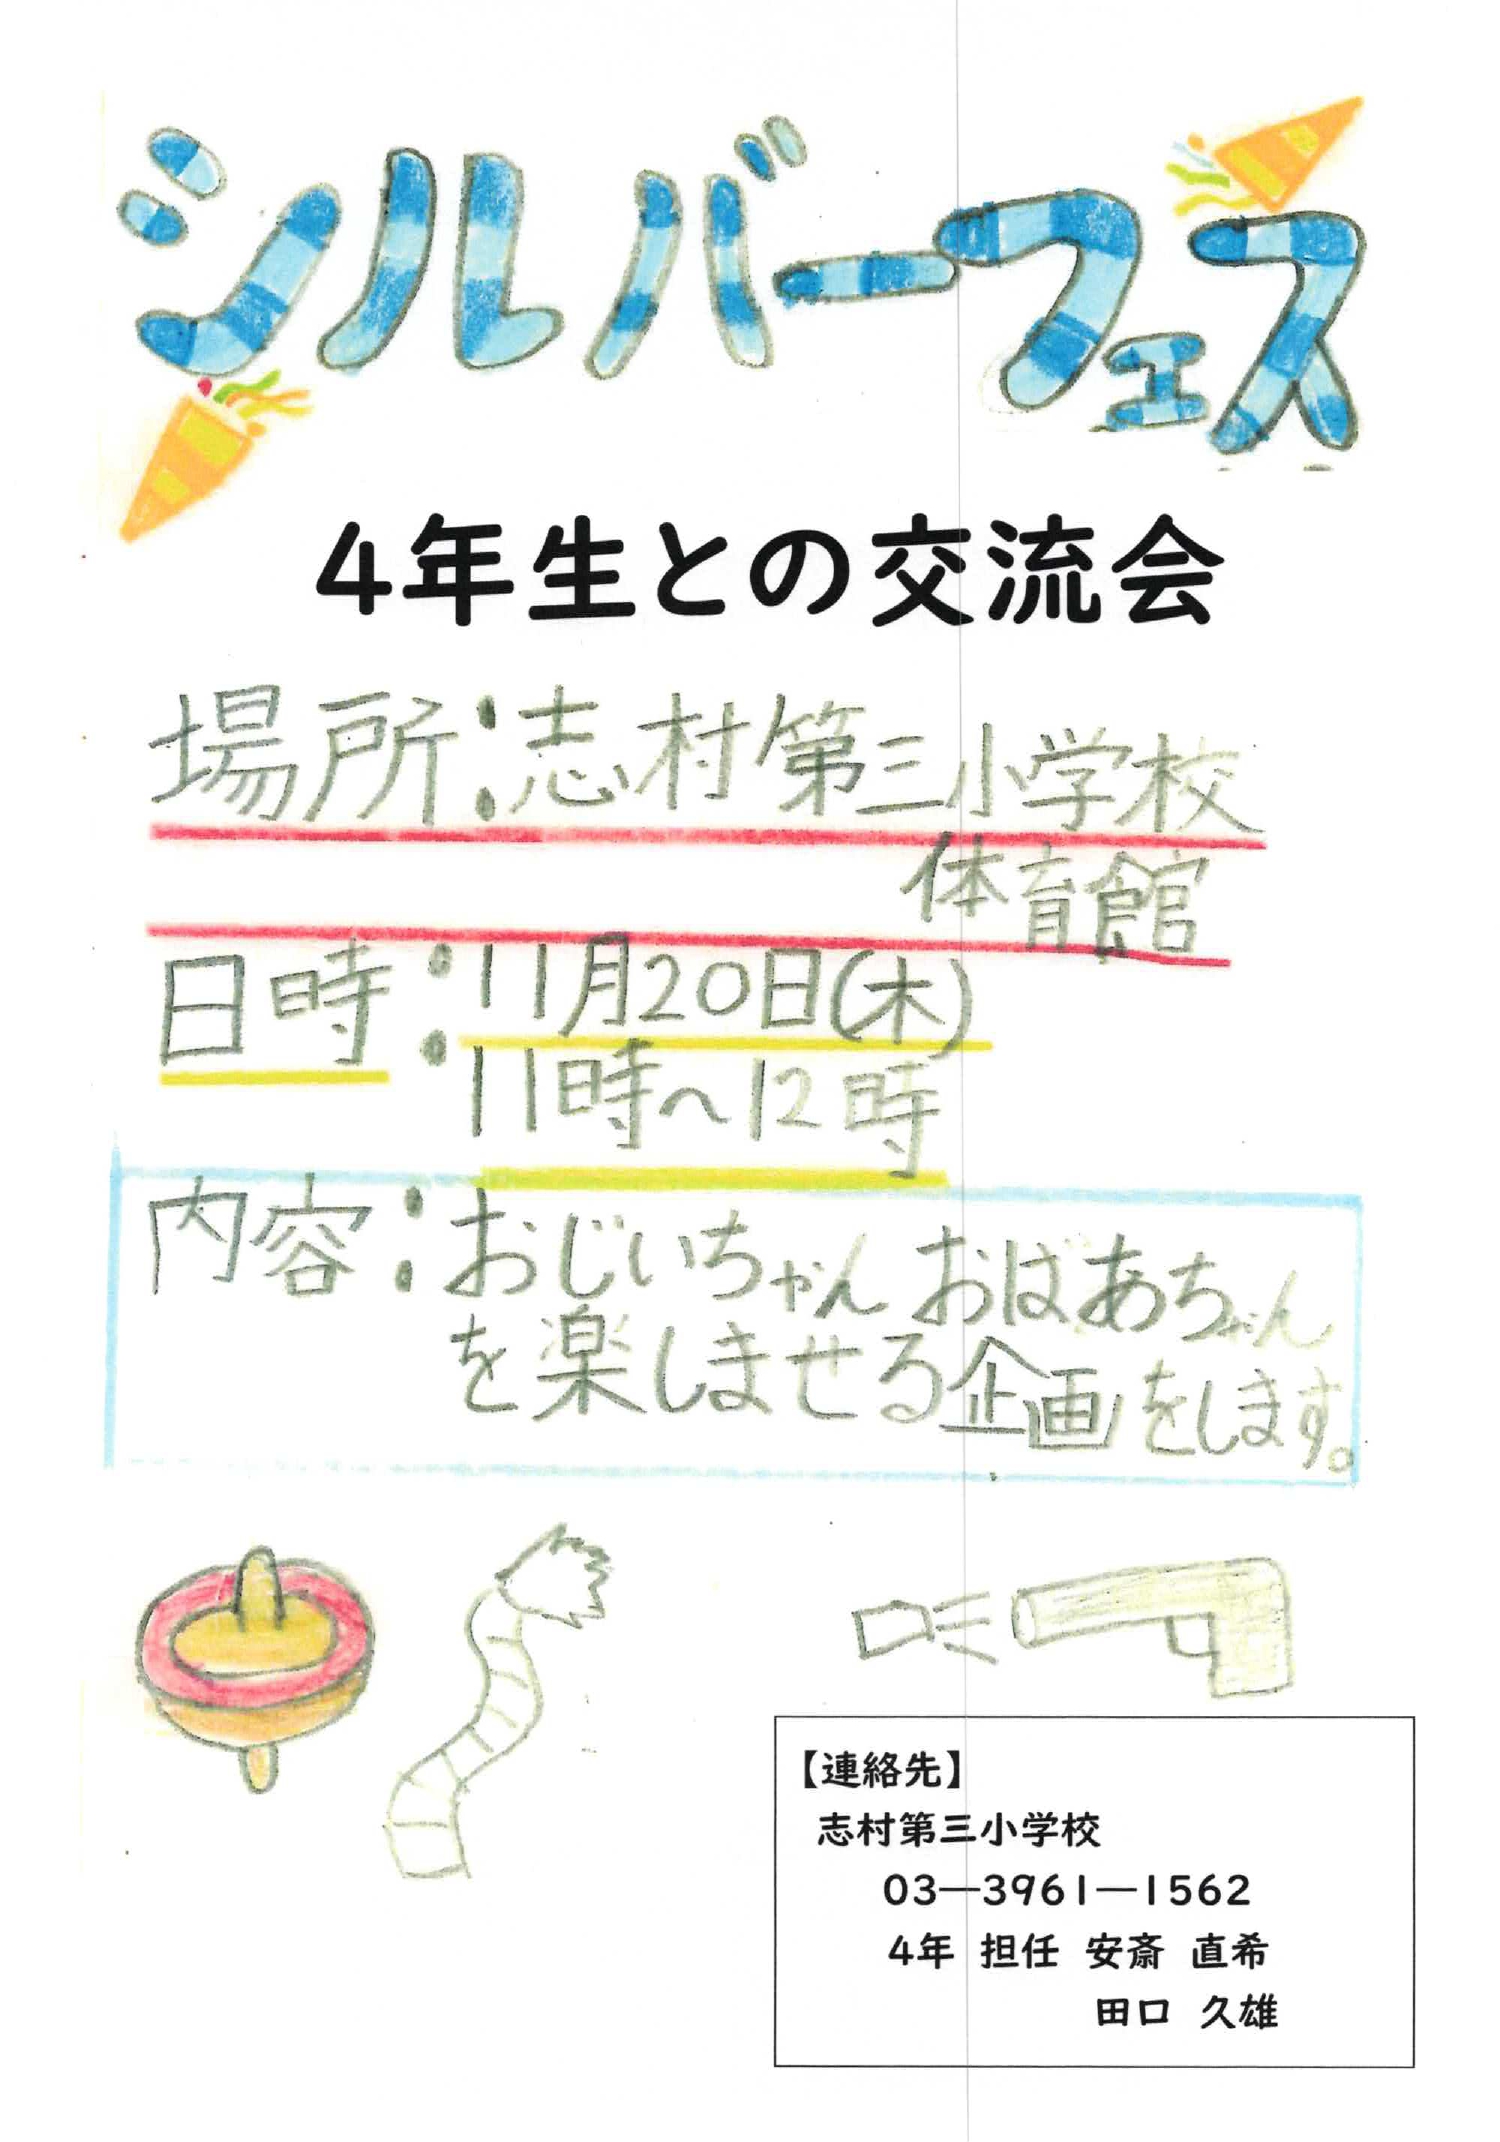 シルバーフェス
4年生との交流会
場所:志村第三小学校
体育館
日時:11月20日(木)
11時~12時
内容:おじいちゃんおばあちゃん
を楽しませる企画をします。
【連絡先】
志村第三小学校
03―3961―1562
4年 担任 安斎 直希
田口 久雄